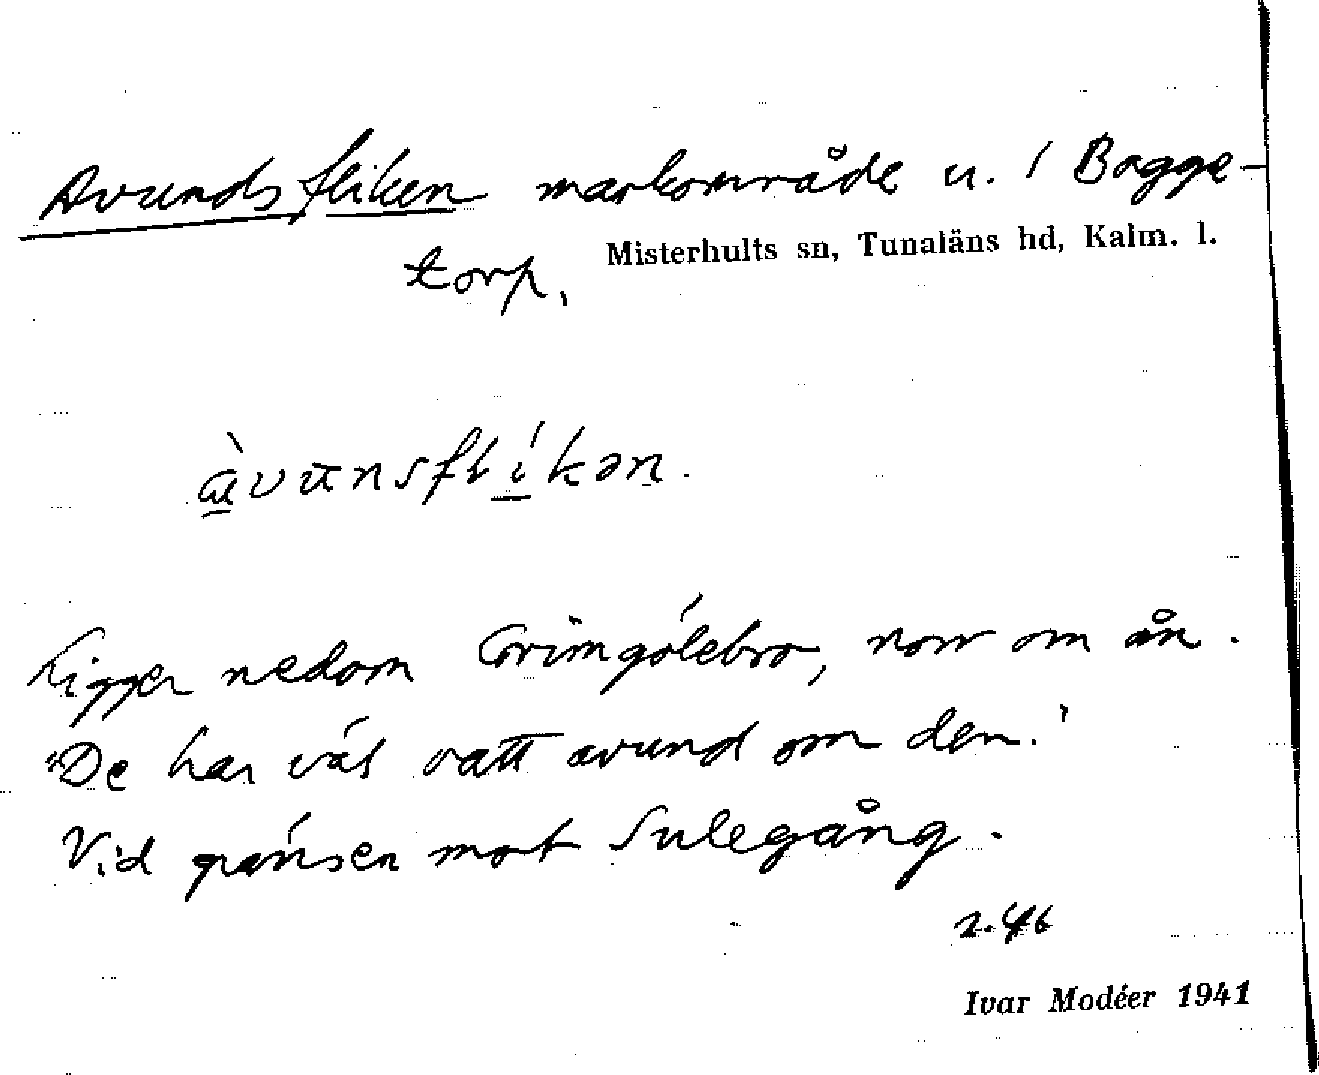 Avundsfliken markområde u. / Bagge-
Misterhults sn, Tunaläns hd, Kalm. l.
torp.
Ligger nedom Grimgölebro, norr om ån.
"De har väl vatt avund om den."
Vid gränsen mot Sulegång.
2.46
Ivar Modéer 1941